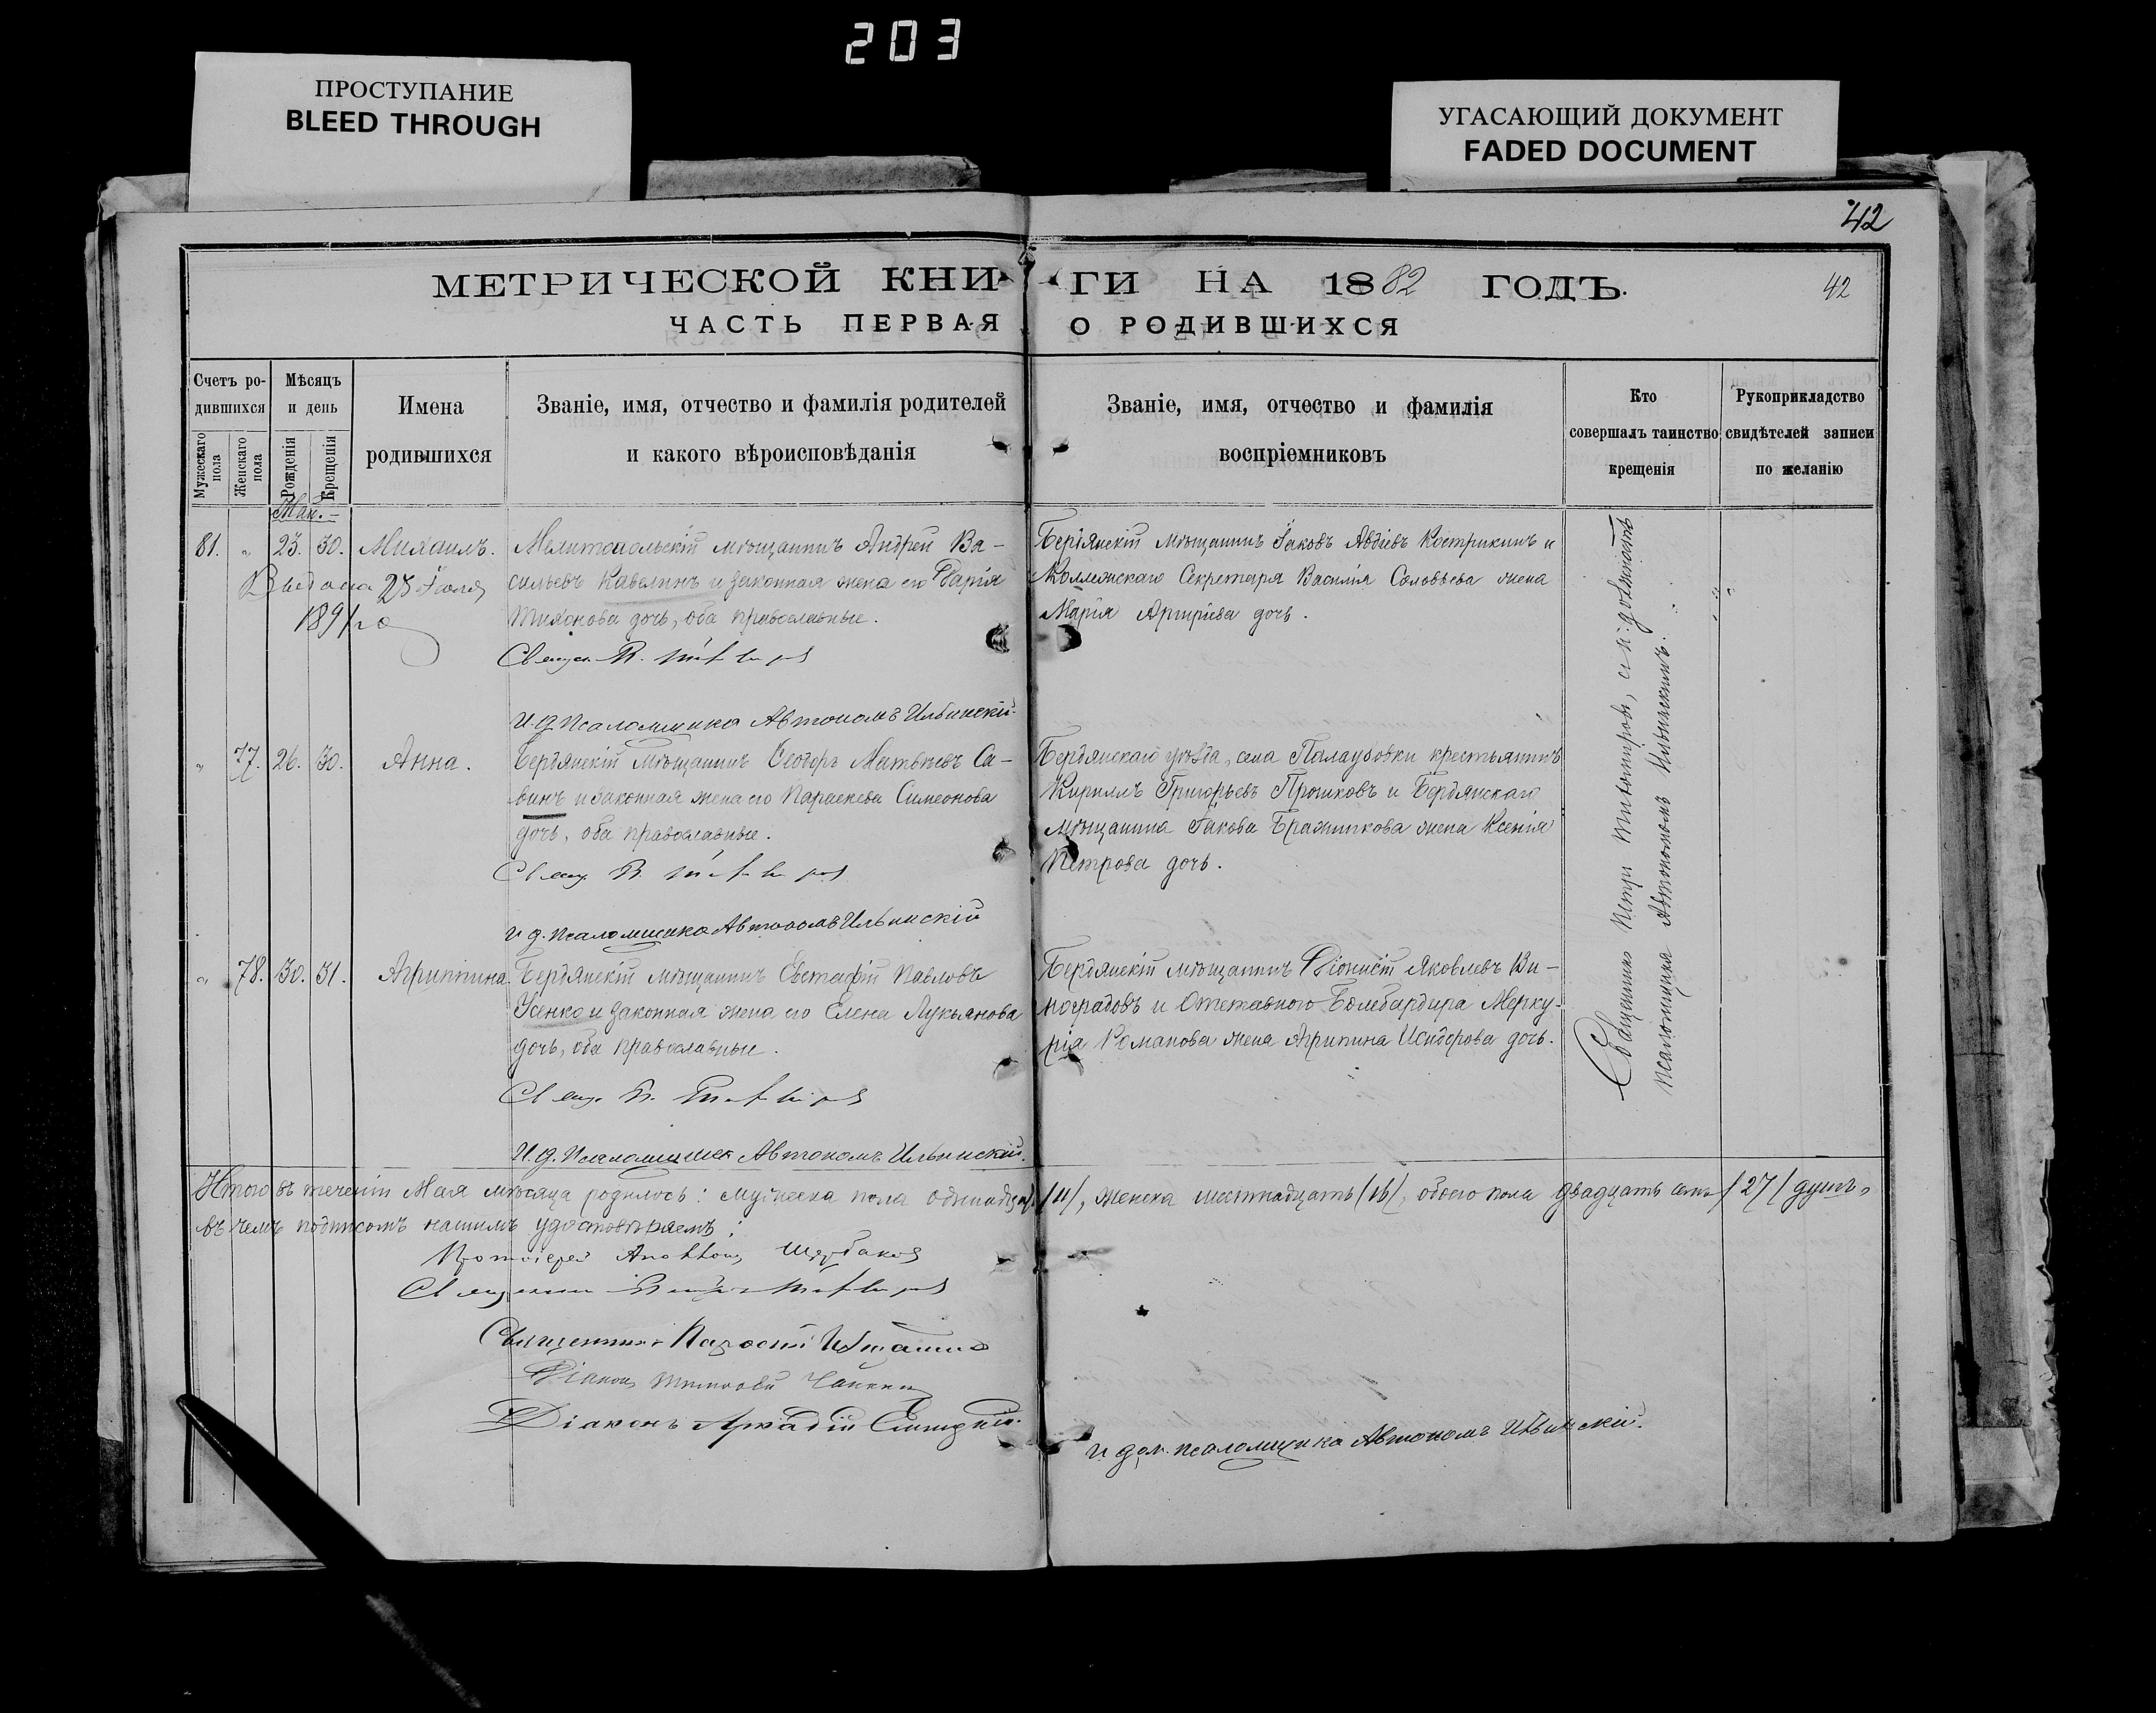 203
ПРОСТУПАНИЕ
BLEED THROUGH
УГАСАЮЩИЙ ДОКУМЕНТ
FADED DOCUMENT
42
МЕТРИЧЕСКОЙ КНИГИ НА 1882 ГОДЪ.
42
ЧАСТЬ ПЕРВАЯ О РОДИВШИХСЯ
Счетъ ро-
дившихся
Мужескаго пола
Женскаго пола
Мѣсяцъ
и день
Рожденія
Крещенія
Имена
родившихся
Званіе, имя, отчество и фамилія родителей
и какого вѣроисповѣданія
Званіе, имя, отчество и фамилія
воспріемниковъ
Кто
совершалъ таинство
крещенія
Рукоприкладство
свидѣтелей записи
по желанію
Мая.
81. " 23. 30. Михаилъ.
Выдана 23 Іюля
1891 го
Мелитопольскій мѣщанинъ Андрей Ва-
сильевъ Кавелинъ и законная жена его Дарія
Тихонова дочь, оба православные.
Свящ. П.
И. д. Псаломщика Автономъ Ильинскій.
Бердянскій мѣщанинъ Іаковъ Авдіевъ Кострикинъ и
Коллежскаго Секретаря Василія Соловьева жена
Марія Аргиріева дочь.
" 77. 26. 30. Анна.
Бердянскій мѣщанинъ Ѳеодоръ Матвѣевъ Са-
винъ и законная жена его Параскева Симеонова
дочь, оба православные.
Свящ. П.
И. д. псаломщика Автономъ Ильинскій
Бердянскаго уѣзда, села Палаузовки крестьянинъ
Кириллъ Григорьевъ Прошковъ и Бердянскаго
мѣщанина Іакова Бражникова жена Ксенія
Петрова дочь.
" 78. 30. 31. Агриппина.
Бердянскій мѣщанинъ Евстафій Павловъ
Усенко и законная жена его Елена Лукьянова
дочь, оба православные.
Свящ. П.
И. д. Псаломщика Автономъ Ильинскій.
Бердянскій мѣщанинъ Діонисій Яковлевъ Ви-
ноградовъ и Отставного Бомбардира Мерку-
рія Романова жена Агрипина Исидорова дочь.
Священникъ Петръ и. должность
псаломщика Автономъ Ильинскій.
Итого въ теченіи Мая мѣсяца родилось: мужеска пола одинадцать /11/, женска шестнадцать /16/, обоего пола двадцать семь /27/ душъ,
въ чемъ подписомъ нашимъ удостовѣряемъ:
Протоіерей Щербаковъ
Священникъ Петръ
Священникъ
Діаконъ Тимоѳей
Діаконъ Аркадій
И. дол. псаломщика Автономъ Ильинскій.